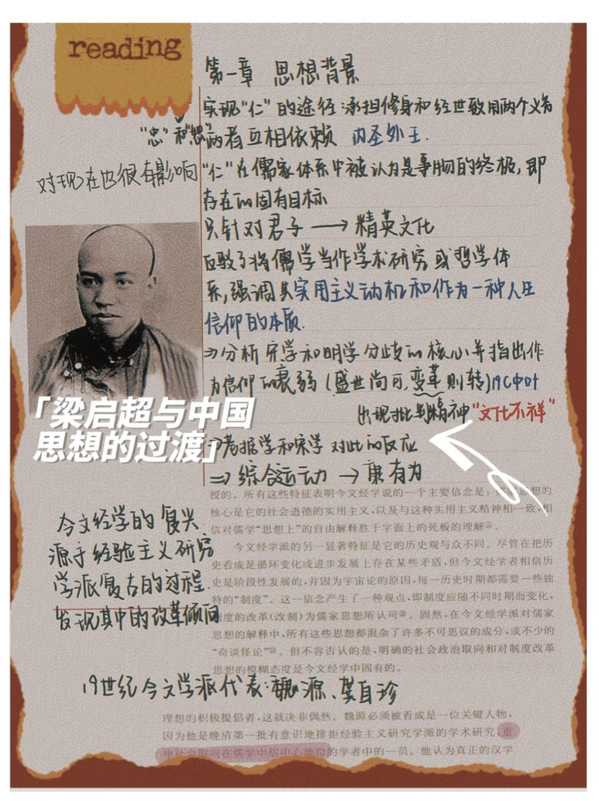 reading
第一章 思想背景
实现"仁"的途径:承担修身和经世致用两个义务
"忠"和"恕"两者互相依赖 内圣外王.
对现在也很有影响
"仁"在儒家体系中被认为是事物的终极,即
存在的固有目标
只针对君子 → 精英文化
反驳了将儒学当作学术研究或哲学体
系,强调其实用主义动机和作为一种人生
信仰的本质.
⇒分析宋学和明学分歧的核心并指出作
为信仰的衰弱(盛世尚可,变革则转)19C中叶
出现批判精神"文化不祥"
「梁启超与中国
思想的过渡」
⇒考据学和宋学对此的反应
⇒综合运动 → 康有为
授的。所有这些特征表明今文经学说的一个主要信念是:
核心是它的社会道德的实用主义,以及与这种实用主义精神相一致,相
信对儒学"思想上"的自由解释胜于字面上的死板的理解
今文经学派的另一显著特征是它的历史观与众不同。尽管在把历
史看成是循环变化或进步发展上存在某些矛盾,但今文经学者相信历
史是阶段性发展的,并因为宇宙论的原因,每一历史时期都需要一些独
特的"制度"。这一信念产生了一种观点,即制度应随不同时期而变化,
制度的改革(改制)为儒家思想所认可。固然,在今文经学派对儒家
思想的解释中,所有这些思想都混杂了许多不可思议的成分,或不少的
"奇谈怪论"。但不容否认的是,明确的社会政治取向和对制度改革
思想的模糊态度是今文经学中固有的。
今文经学的复兴
源于经验主义研究
学派复古的过程.
发现其中的改革倾向
19世纪今文学派代表:魏源、龚自珍
理想的积极提倡者,这就决非偶然。魏源必须被看成是一位关键人物,
因为他是晚清第一批有意识地排拒经验主义研究学派的学术研究,重
申社会取向在儒学中居中心地位的学者中的一员。他认为真正的汉学